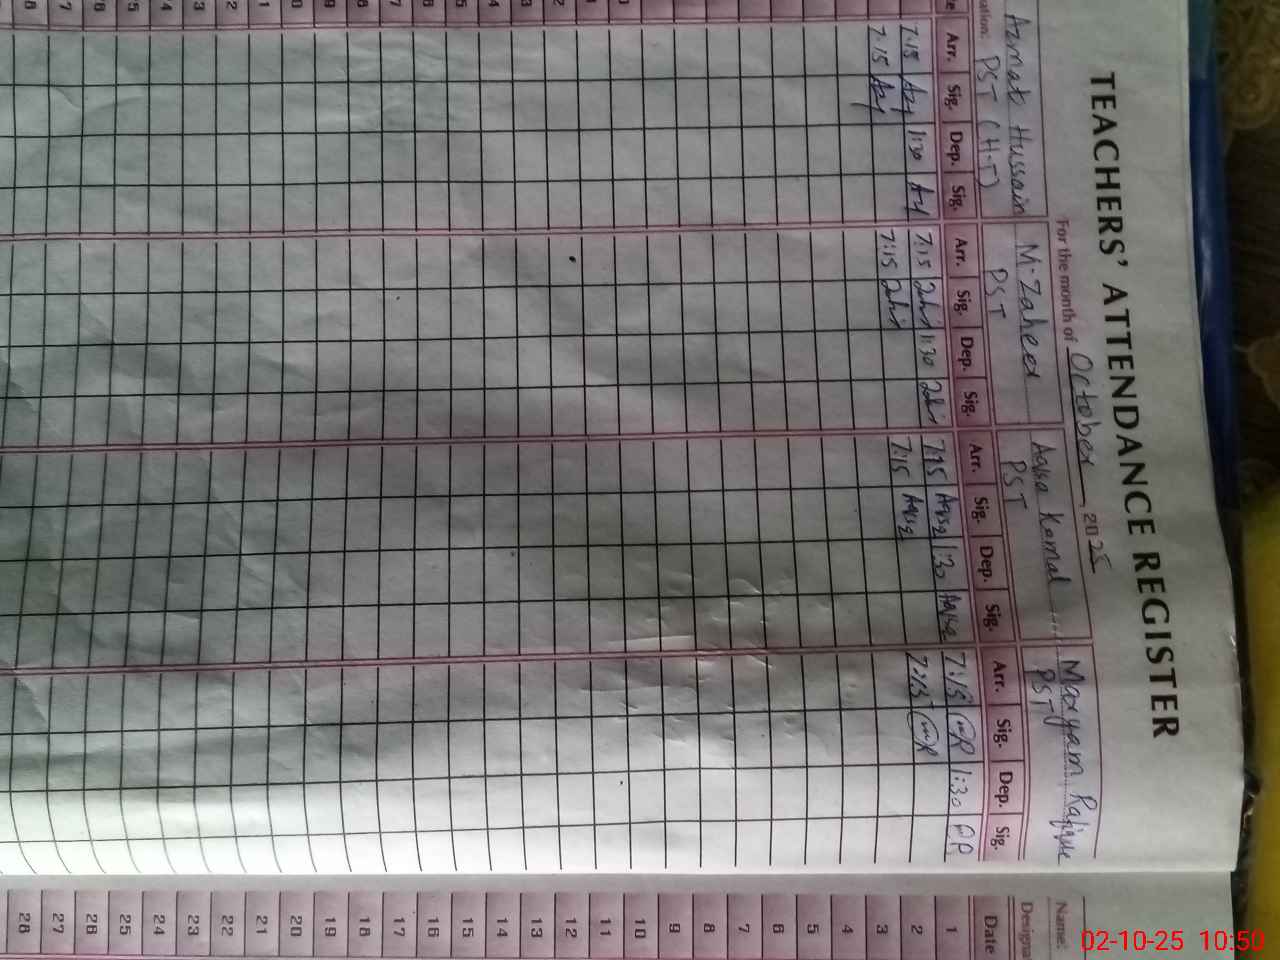 TEACHERS' ATTENDANCE REGISTER
For the month of October, 2025
Azmat Hussain M. Zaheer Aqsa Kamal Maryam Rafique Name:
PST (H.T) PST PST PST
Arr. Sig. Dep. Sig. Arr. Sig. Dep. Sig. Arr. Sig. Dep. Sig. Arr. Sig. Dep. Sig. Date
7.15 1:30 7:15 1:30 7:15 Aqsa 1:30 Aqsa 7:15 MR 1:30 MR 1
7.15 7:15 7:15 Aqsa 7:15 MR 2
3
4
5
6
7
8
9
10
11
12
13
14
15
16
17
18
19
20
21
22
23
24
25
26
27
28
02-10-25 10:50